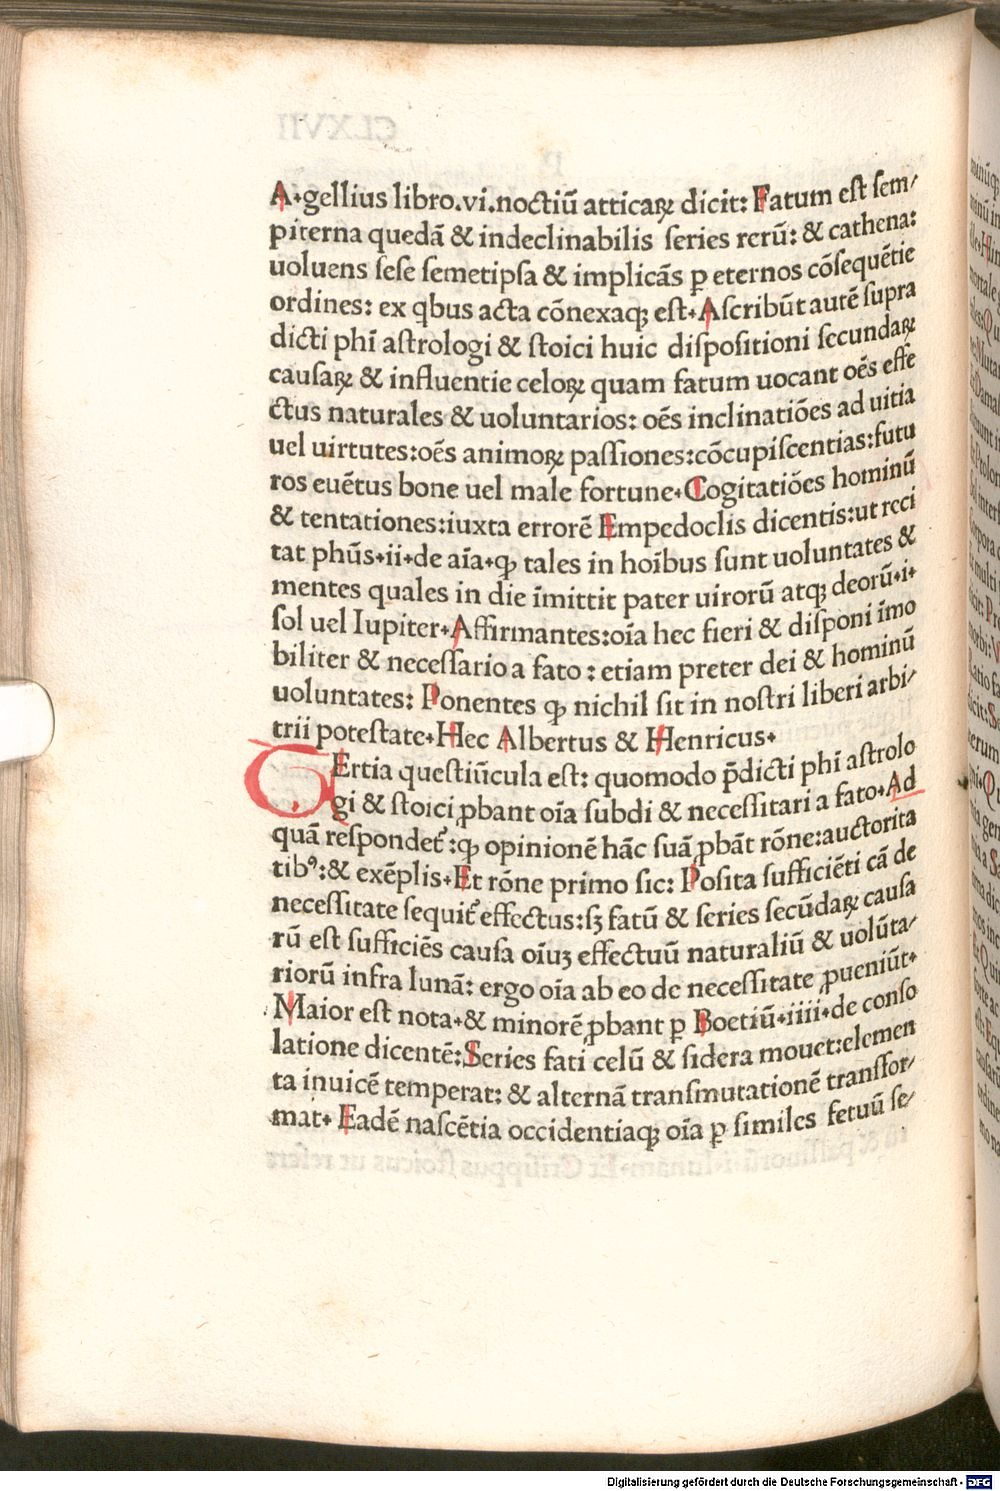 A.gellius libro.vi.noctiū atticaꝝ dicit: Fatum eſt ſem⸗
piterna quedā & indeclinabilis ſeries rerū: & cathena:
uoluens ſeſe ſemetipſa & implicās ꝑ eternos cōſequētie
ordines: ex qbus acta cōnexaqꝫ eſt. Aſcribūt autē ſupra
dicti phī aſtrologi & ſtoici huic diſpoſitioni ſecundaꝝ
cauſaꝝ & influentie celoꝝ quam fatum uocant oēs effe
ctus naturales & uoluntarios: oēs inclinatiōes ad uitia
uel uirtutes:oēs animoꝝ paſſiones:cōcupiſcentias:futu
ros euētus bone uel male fortune. Cogitatiōes hominū
& tentationes:iuxta errorē Empedoclis dicentis:ut reci
tat phūs.ii.de aīa.ꝙ tales in hoībus ſunt uoluntates &
mentes quales in die īmittit pater uirorū atqꝫ deorū.i.
ſol uel Iupiter. Affirmantes:oīa hec fieri & diſponi īmo
biliter & neceſſario a fato : etiam preter dei & hominū
uoluntates: Ponentes ꝙ nichil ſit in noſtri liberi arbi⸗
trii poteſtate. Hec Albertus & Henricus.
TErtia queſtiūcula eſt: quomodo p̄dicti phī aſtrolo
gi & ſtoici ꝓbant oīa ſubdi & neceſſitari a fato. Ad
quā reſpondet᷑:ꝙ opinionē hāc ſuā ꝓbāt rōne:auctorita
tibꝰ:& exēplis. Et rōne primo ſic: Poſita ſufficiēti cā de
neceſſitate ſequit᷑ effectus:ſꝫ fatū & ſeries ſecūdaꝝ cauſa
rū eſt ſufficiēs cauſa oīuꝫ effectuū naturaliū & uolūta⸗
riorū infra lunā: ergo oīa ab eo de neceſſitate ꝓueniūt.
Maior eſt nota. & minorē ꝓbant ꝑ Boetiū.iiii.de conſo
latione dicentē:Series fati celū & ſidera mouet:elemen
ta inuicē temperat: & alternā tranſmutationē tranſfor⸗
mat. Eadē naſcētia occidentiaqꝫ oīa ꝑ ſimiles fetuū ſe⸗
Digitalisierung gefördert durch die Deutsche Forschungsgemeinschaft - DFG